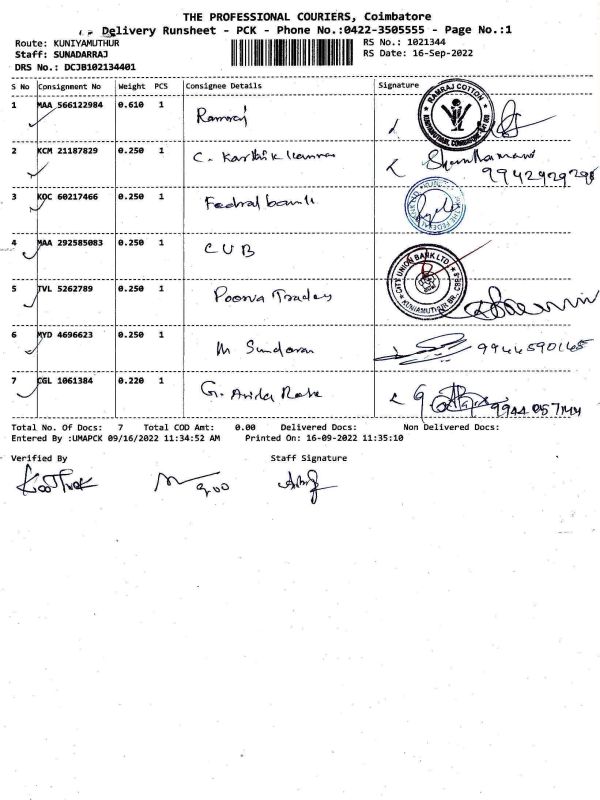 THE PROFESSIONAL COURIERS, Coimbatore
Delivery Runsheet - PCK - Phone No.:0422-3505555 - Page No.:1
Route: KUNIYAMUTHUR RS No.: 1021344
Staff: SUNADARRAJ RS Date: 16-Sep-2022
DRS No.: DCJB102134401
S No Consignment No Weight PCS Consignee Details Signature
1 MAA 566122984 0.610 1 Ramraj
RAMRAJ COTTON
2 KCM 21187829 0.250 1 C. Karthik Kumar
9942929298
3 KOC 60217466 0.250 1 Fedral bank
4 MAA 292585083 0.250 1 CUB
CITY UNION BANK LTD
5 TVL 5262789 0.250 1 Poorva Traders
6 MYD 4696623 0.250 1 M Sundaram 9944590165
7 CGL 1061384 0.220 1 G. 9944057144
Total No. Of Docs: 7 Total COD Amt: 0.00 Delivered Docs: Non Delivered Docs:
Entered By :UMAPCK 09/16/2022 11:34:52 AM Printed On: 16-09-2022 11:35:10
Verified By Staff Signature